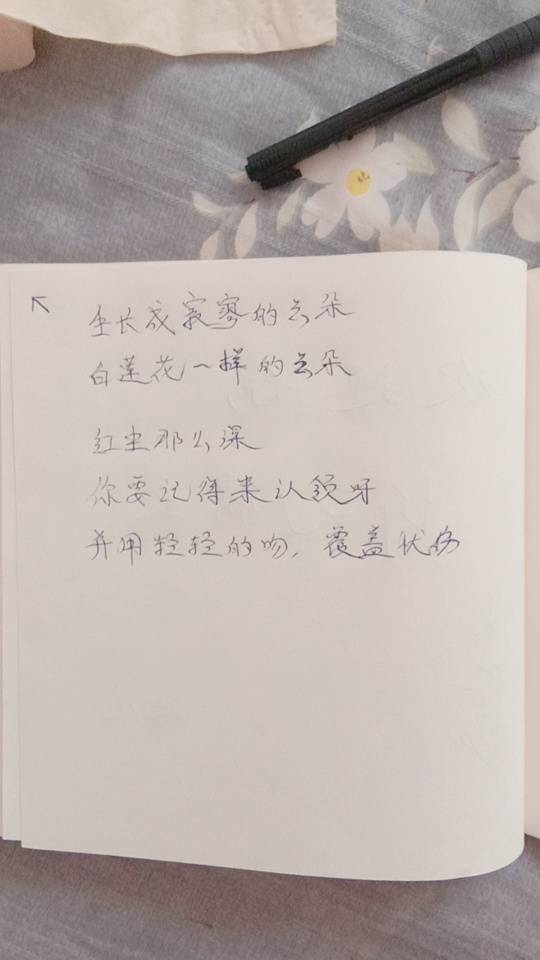 生长成寂寥的云朵
白莲花一样的云朵
红尘那么深
你要记得来认领呀
并用轻轻的吻，覆盖忧伤